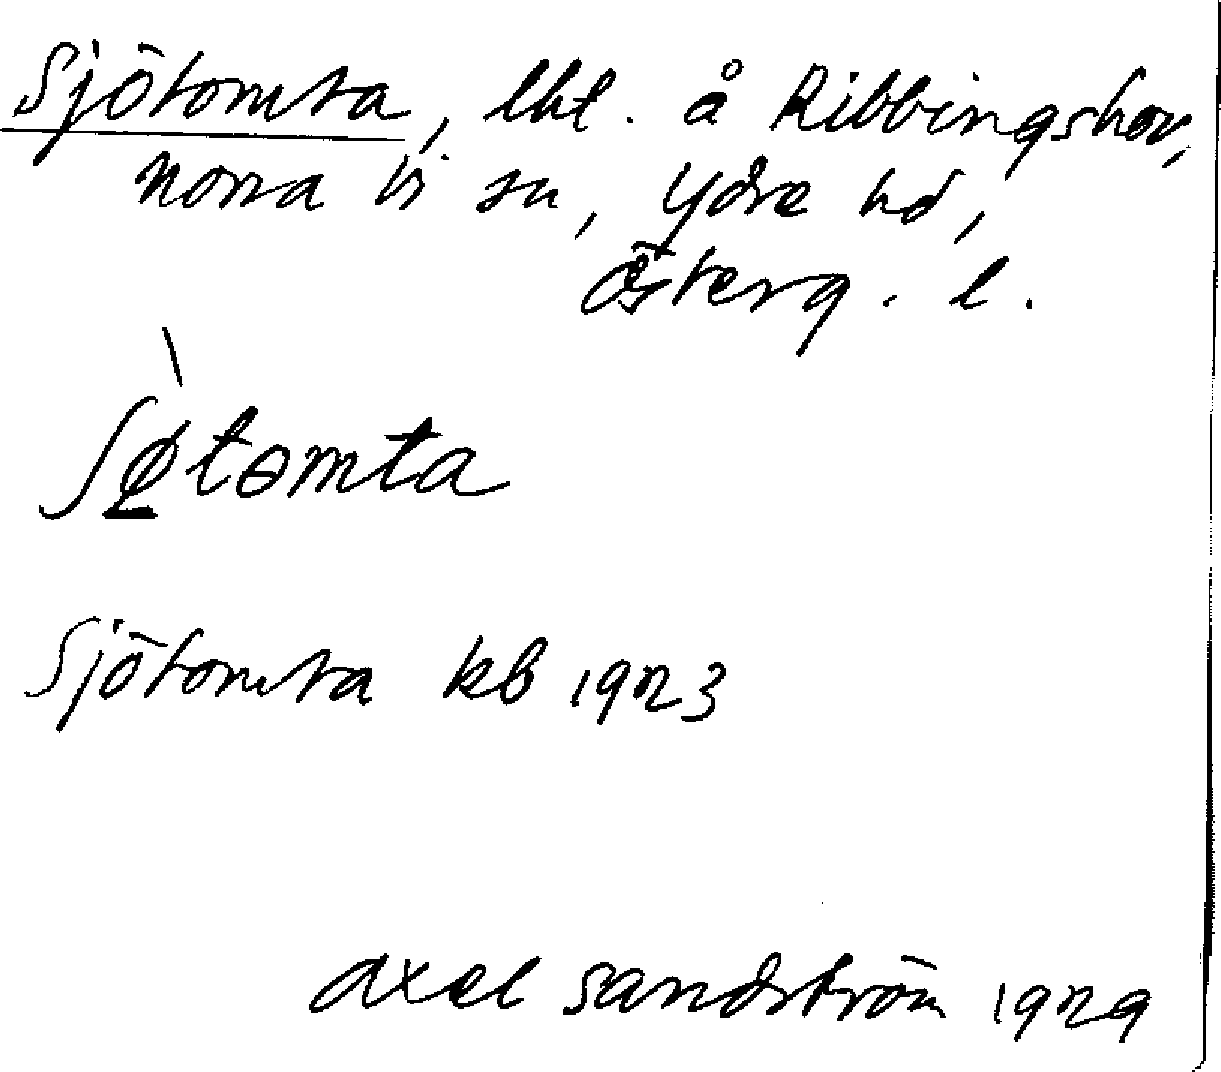 Sjötomta, lht. å Ribbingshov,
Norra Vi sn, Ydre hd,
Österg. l.
ʃø̀tɵmta
Sjötomta kb 1923
Axel Sandström 1929